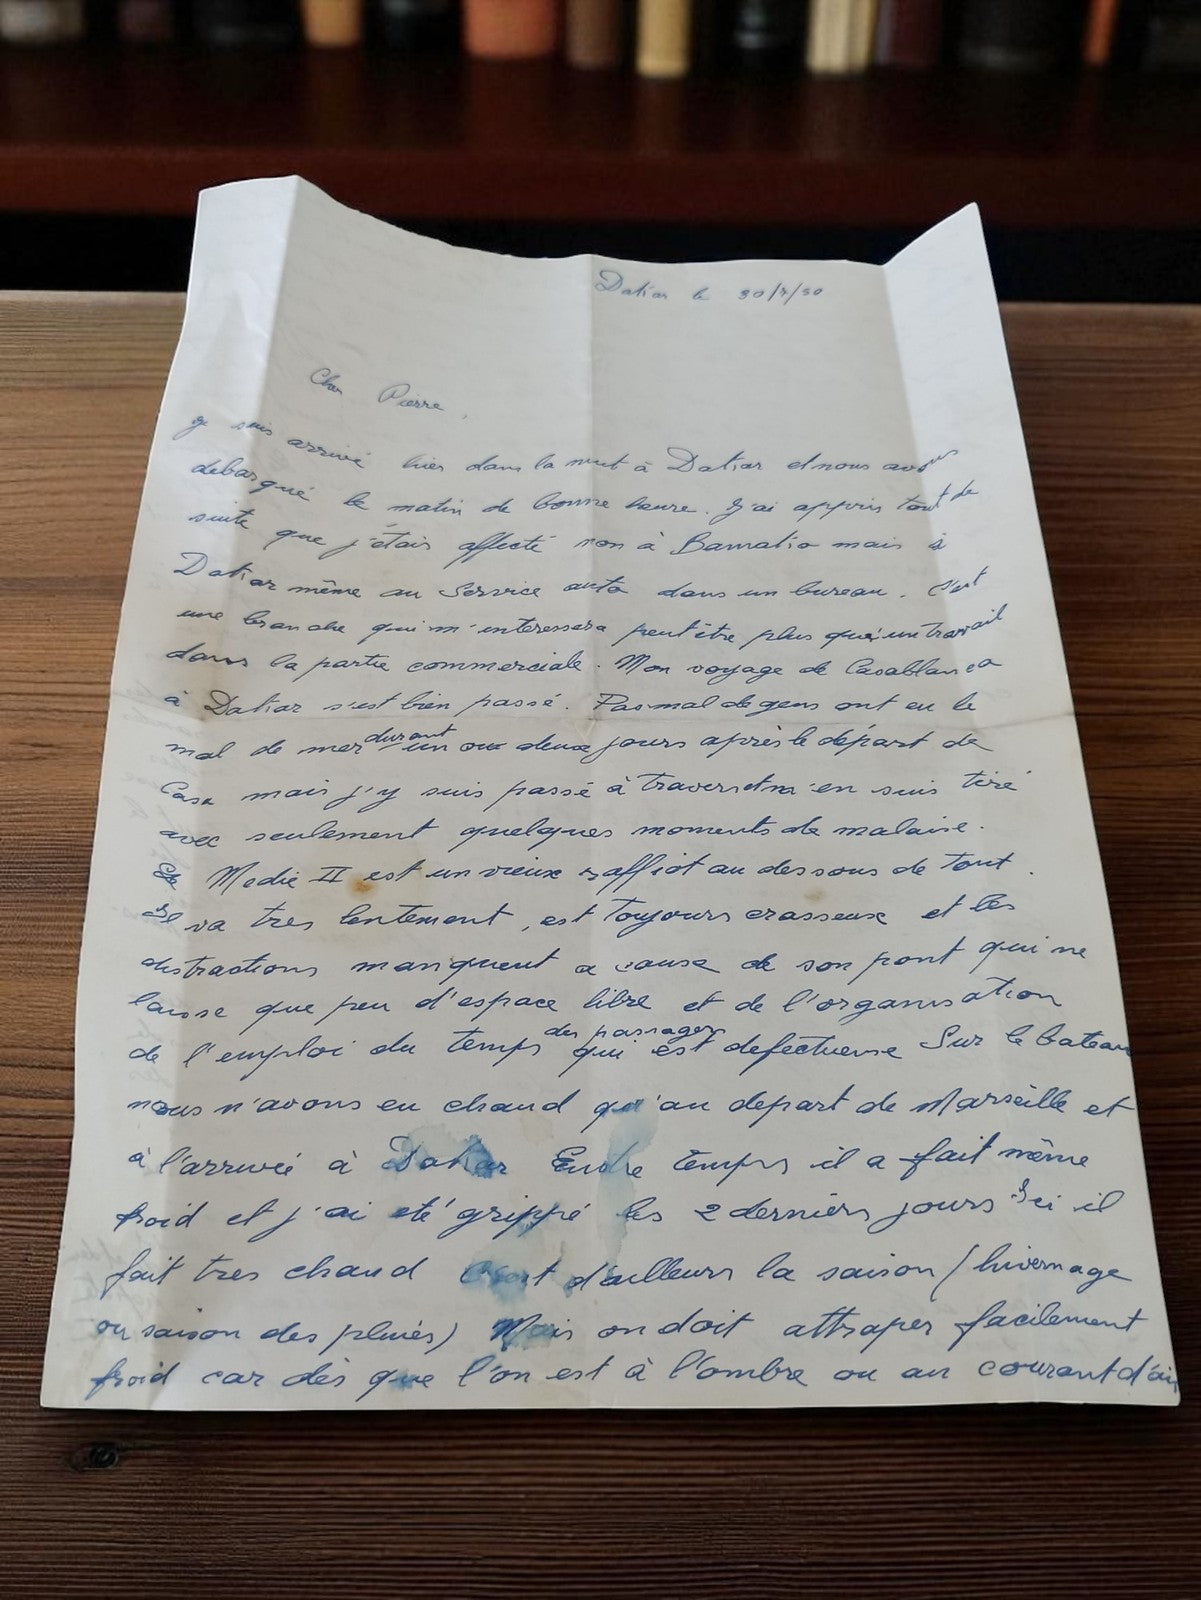 Dakar le 30/7/50
Cher Pierre,
Je suis arrivé hier dans la nuit à Dakar et nous avons
debarqué le matin de bonne heure. J'ai appris tout de
suite que j'étais affecté non à Bamako mais à
Dakar même au Service auto dans un bureau. C'est
une branche qui m'interessera peut être plus qu'un travail
dans la partie commerciale. Mon voyage de Casablanca
à Dakar s'est bien passé. Pas mal de gens ont eu le
mal de mer durant un ou deux jours après le départ de
Casa mais j'y suis passé à travers et m'en suis tiré
avec seulement quelques moments de malaise.
Le Medie II est un vieux raffiot au dessous de tout.
Il va tres lentement, est toujours crasseux et les
distractions manquent a cause de son pont qui ne
laisse que peu d'espace libre et de l'organisation
de l'emploi du temps des passagers qui est defectueuse Sur le bateau
nous n'avons eu chaud qu'au depart de Marseille et
à l'arrivée à Dakar Entre temps il a fait même
froid et j'ai eté grippé les 2 derniers jours Ici il
fait tres chaud C'est d'ailleurs la saison (hivernage
ou saison des pluies) Mais on doit attraper facilement
froid car dès que l'on est à l'ombre ou au courant d'air